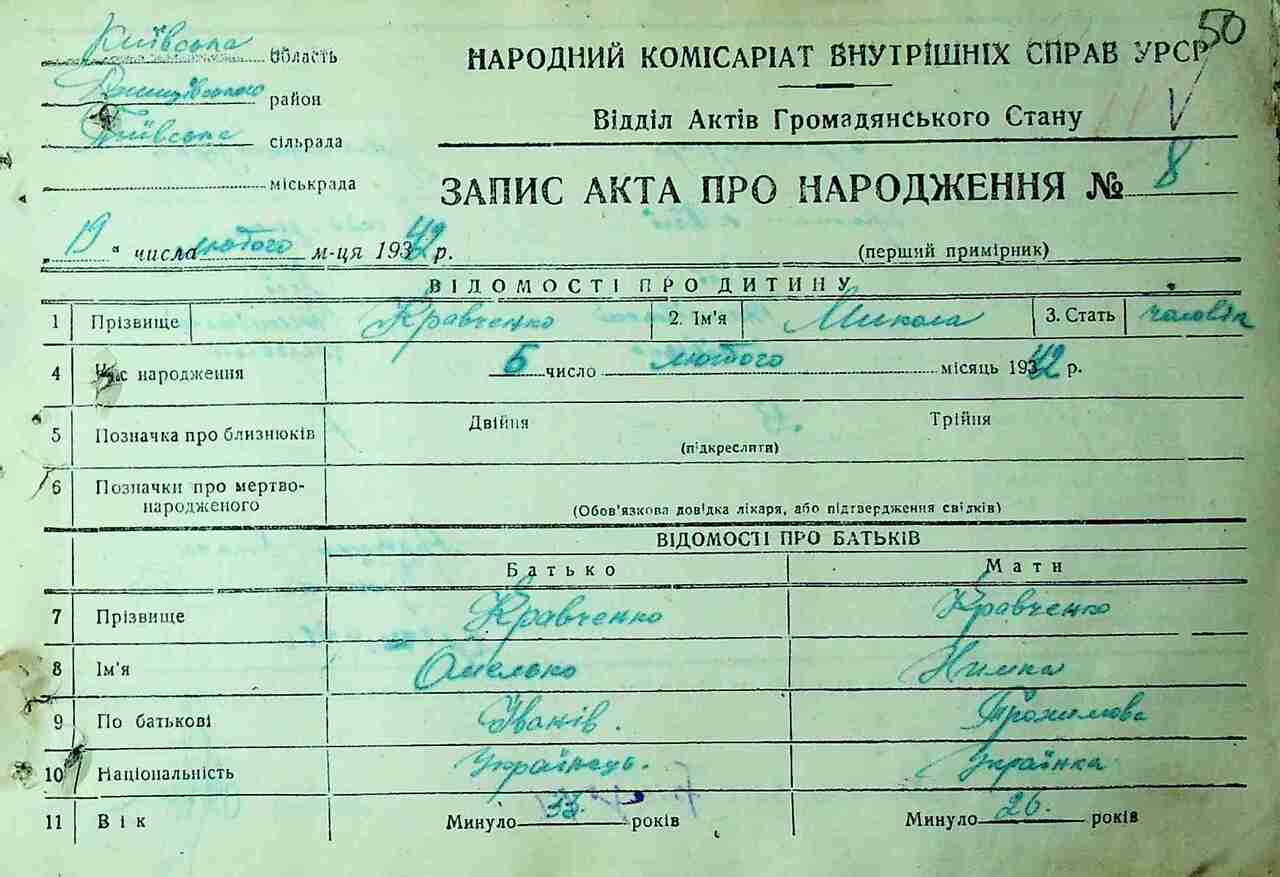 50
Київська область
район
сільрада
міськрада
НАРОДНИЙ КОМІСАРІАТ ВНУТРІШНІХ СПРАВ УРСР
Відділ Актів Громадянського Стану
V
ЗАПИС АКТА ПРО НАРОДЖЕННЯ № 8
„19" числа лютого м-ця 1942 р.
(перший примірник)
ВІДОМОСТІ ПРО ДИТИНУ
1 Прізвище Кравченко 2. Ім'я Микола 3. Стать чоловіч
4 Час народження 5 число лютого місяць 1942 р.
5 Позначка про близнюків Двійня Трійня
(підкреслити)
6 Позначки про мертво-
народженого
(Обов'язкова довідка лікаря, або підтвердження свідків)
ВІДОМОСТІ ПРО БАТЬКІВ
Батько Мати
7 Прізвище Кравченко Кравченко
8 Ім'я Омелько Химка
9 По батькові Іванів. Трохимова
10 Національність Українець. Українка
11 Вік Минуло 33. років Минуло 26. років